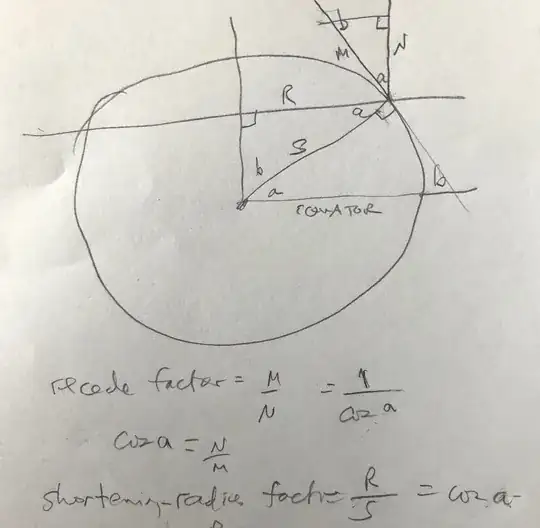 b
M
N
a
R
a
b
S
a
b
EQUATOR
recede factor = M/N = 1/cos a
cos a = N/M
shortening-radius factor = R/S = cos a